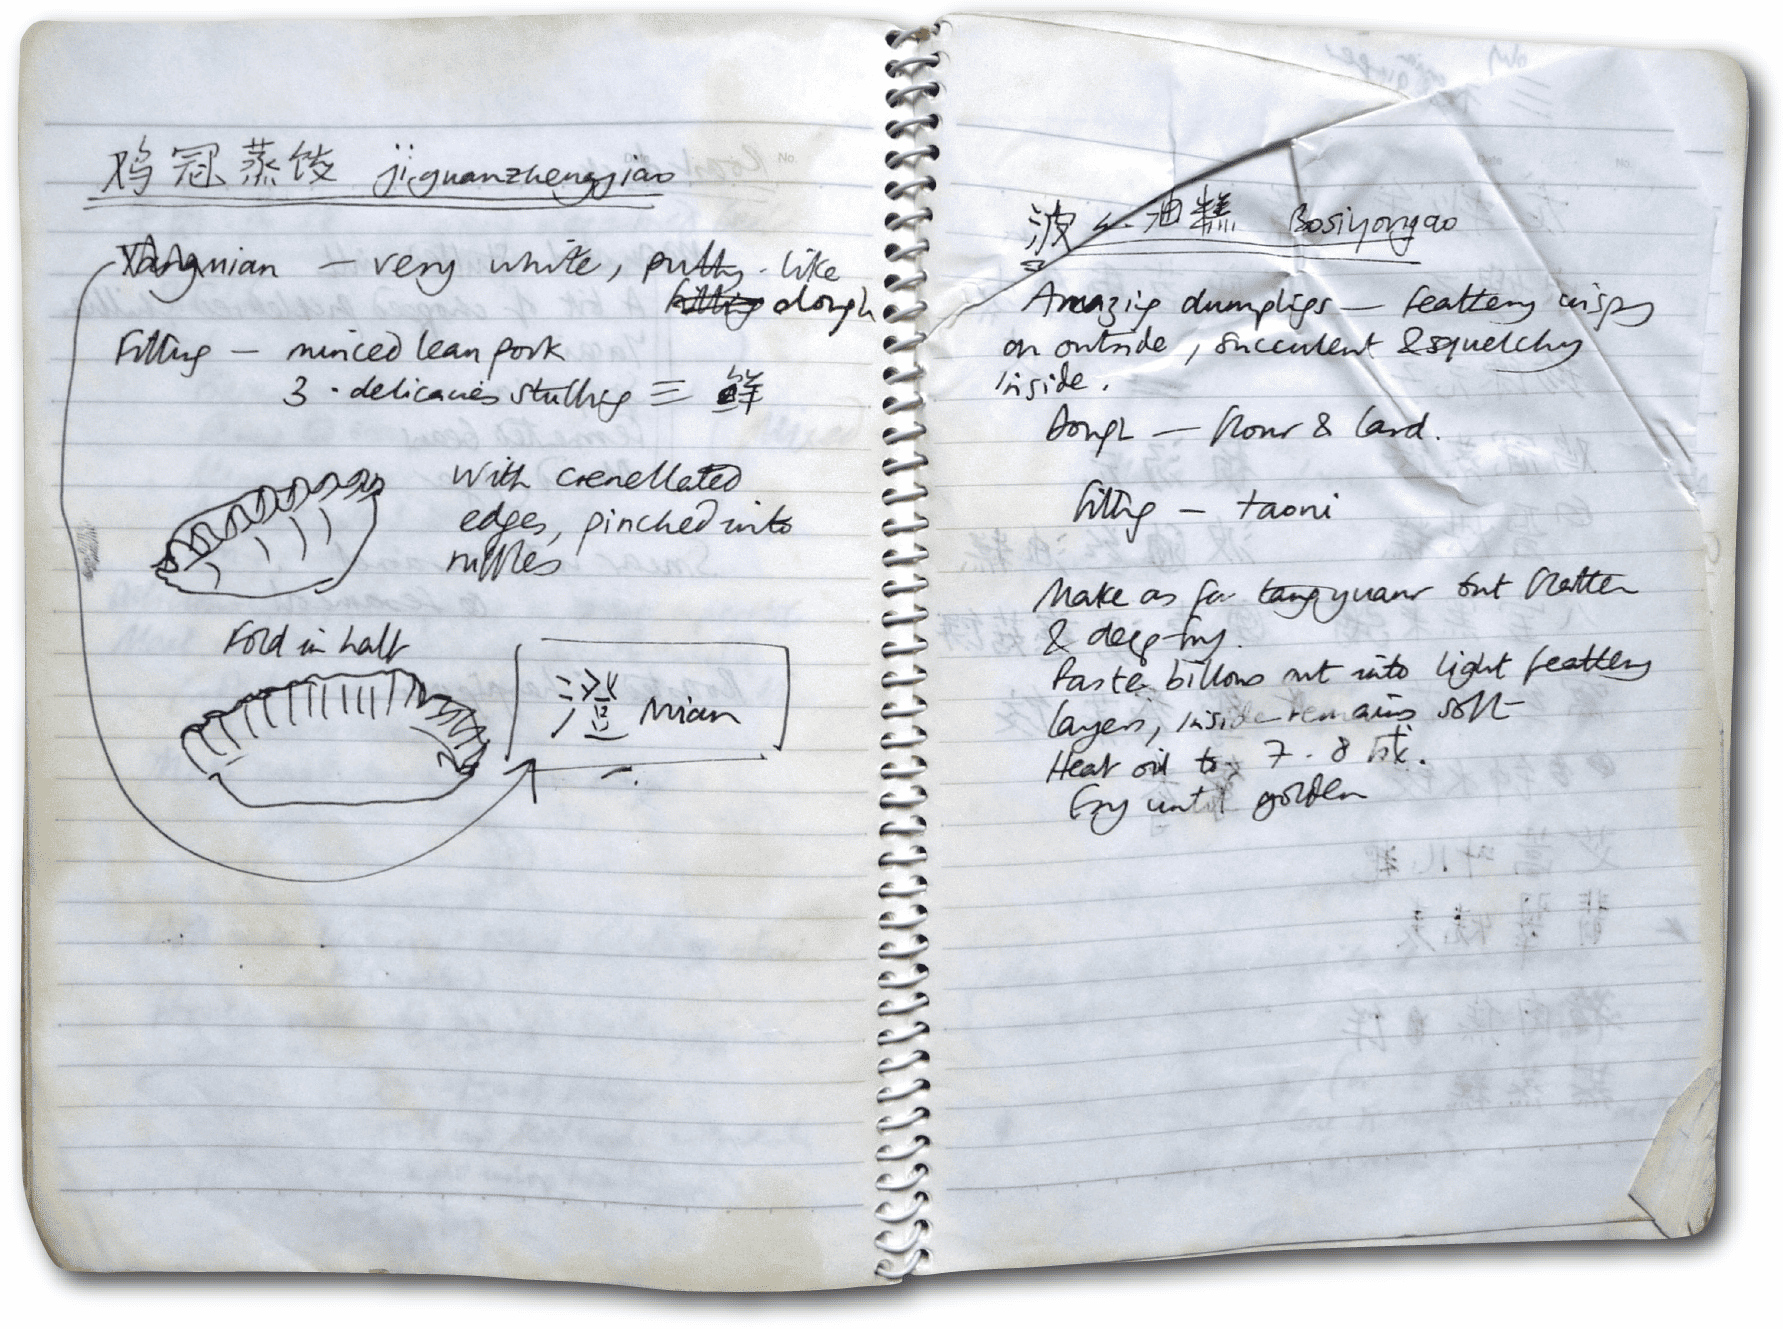 鸡冠蒸饺 jiguanzhengjiao
mian — very white, putty-like
dough
Filling — minced lean pork
3-delicacies stuffing 三鲜
With crenellated
edges, pinched into
ruffles
Fold in half
澄 mian
波丝油糕 Bosiyougao
Amazing dumplings — feathery crispy
on outside, succulent & squelchy
inside.
Dough — flour & lard.
Filling — taoni
Make as for tangyuanr but flatten
& deep-fry.
Paste billows out into light feathery
layers, inside remains soft
Heat oil to 7-8 成.
Fry until golden